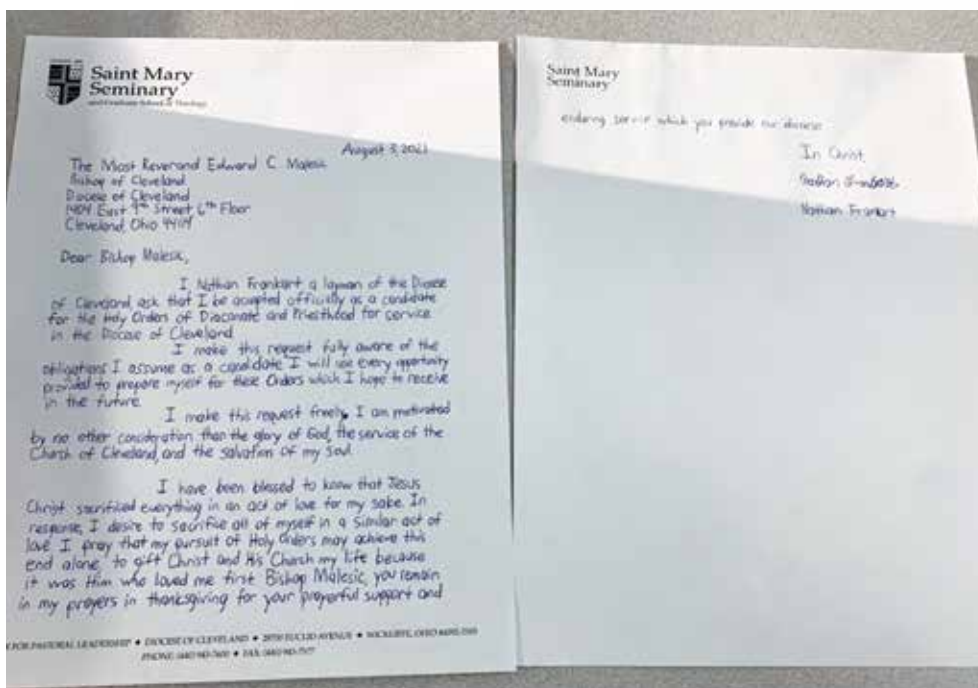 Saint Mary
Seminary
and Graduate School of Theology
August 3, 2021
The Most Reverend Edward C. Malesic
Bishop of Cleveland
Diocese of Cleveland
1404 East 9th Street 6th Floor
Cleveland, Ohio 44114
Dear Bishop Malesic,
I Nathan Frankart a layman of the Diocese
of Cleveland, ask that I be accepted officially as a candidate
for the Holy Orders of Diaconate and Priesthood for service
in the Diocese of Cleveland
I make this request fully aware of the
obligations I assume as a candidate I will use every opportunity
provided to prepare myself for these Orders which I hope to receive
in the future
I make this request freely, I am motivated
by no other consideration than the glory of God, the service of the
Church of Cleveland, and the salvation of my Soul
I have been blessed to know that Jesus
Christ sacrificed everything in an act of love for my sake. In
response, I desire to sacrifice all of myself in a similar act of
love I pray that my pursuit of Holy Orders may achieve this
end alone, to gift Christ and His Church my life because
it was Him who loved me first Bishop Malesic, you remain
in my prayers in thanksgiving for your prayerful support and
FOR PASTORAL LEADERSHIP ♦ DIOCESE OF CLEVELAND ♦ EUCLID AVENUE ♦ WICKLIFFE, OHIO
PHONE: (440) 943-7600 ♦ FAX: (440) 943-7577
Saint Mary
Seminary
enduring service which you provide our diocese
In Christ,
Nathan Frankart